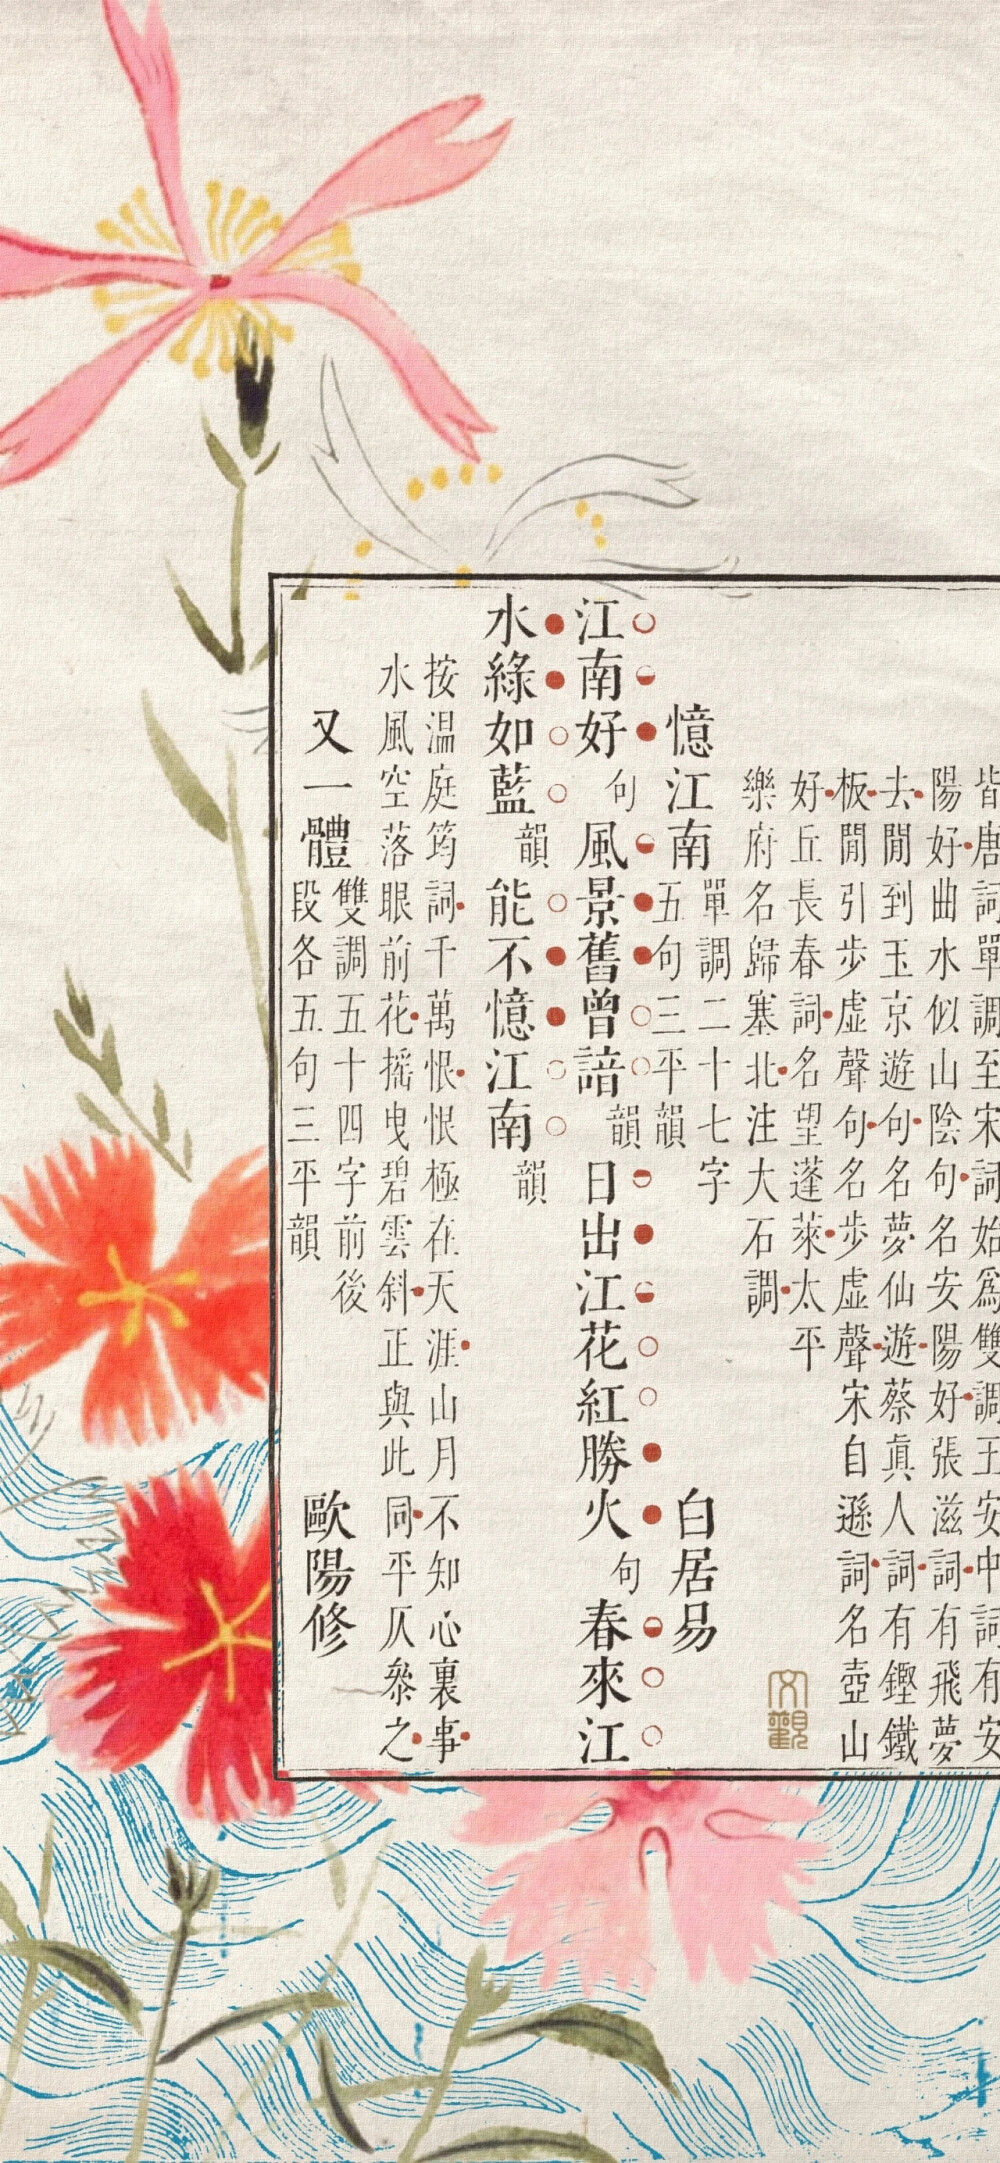 皆唐詞單調至宋詞始爲雙調王安中詞有安
陽好曲水似山陰句名安陽好張滋詞有飛夢
去閒到玉京遊句名夢仙遊蔡真人詞有鏗鐵
板閒引步虛聲句名步虛聲宋自遜詞名壺山
好丘長春詞名望蓬萊太平
樂府名歸塞北注大石調
憶江南 單調二十七字
五句三平韻 白居易
江南好句風景舊曾諳韻日出江花紅勝火句春來江
水綠如藍韻能不憶江南韻
按温庭筠詞千萬恨恨極在天涯山月不知心裏事
水風空落眼前花搖曳碧雲斜正與此同平仄叅之
又一體 雙調五十四字前後
段各五句三平韻 歐陽修
文觀